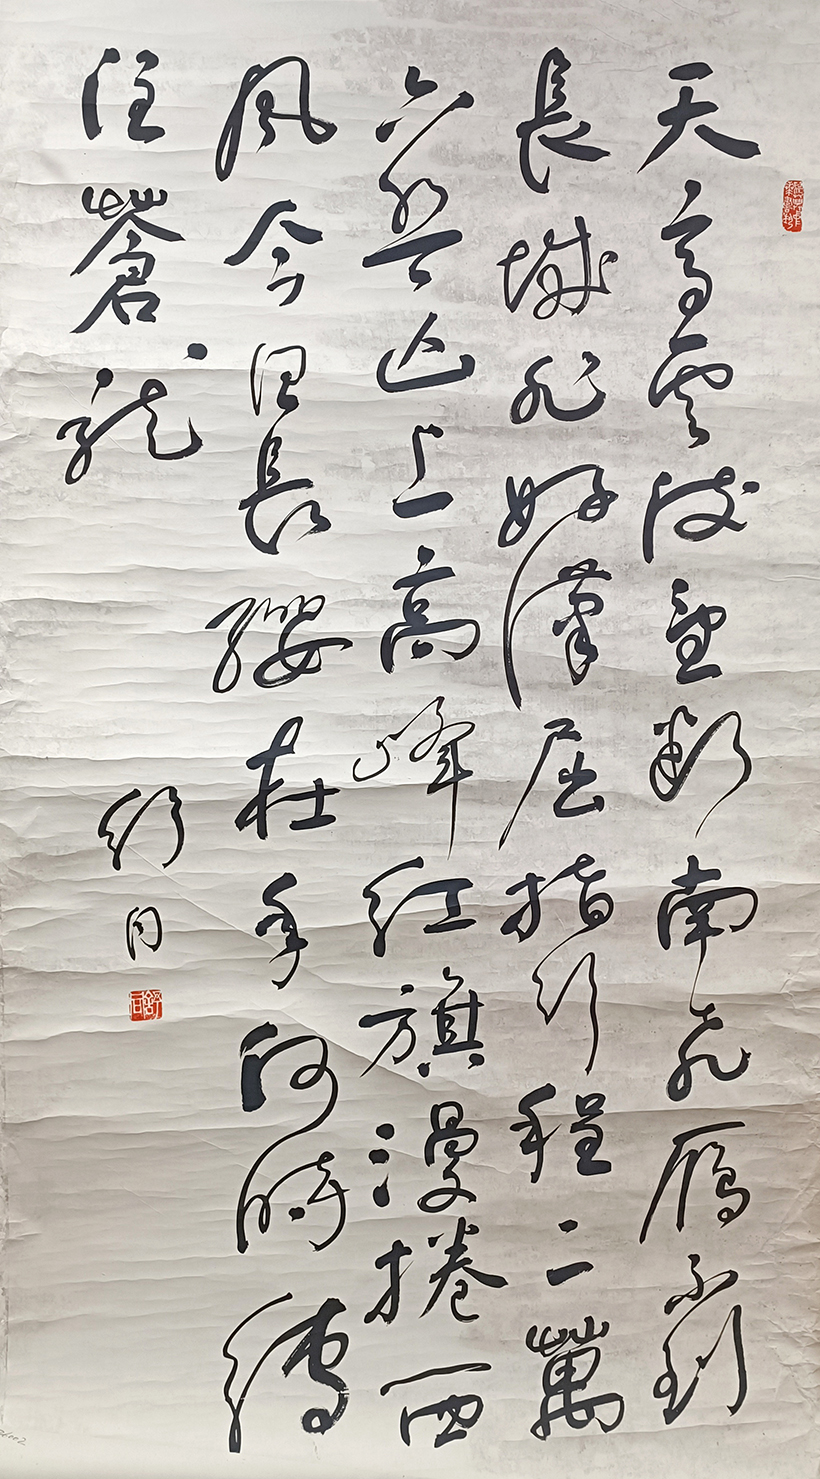 天高雲淡望斷南飛雁不到
長城非好漢屈指行程二萬
六盤山上高峰紅旗漫捲西
風今日長纓在手何時縛
住蒼龍
舒同
舒同